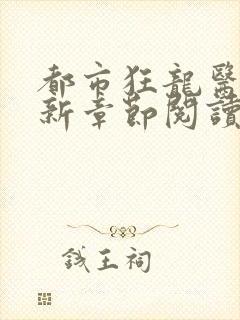 都市狂龍醫
新章節閱讀
錢王祠